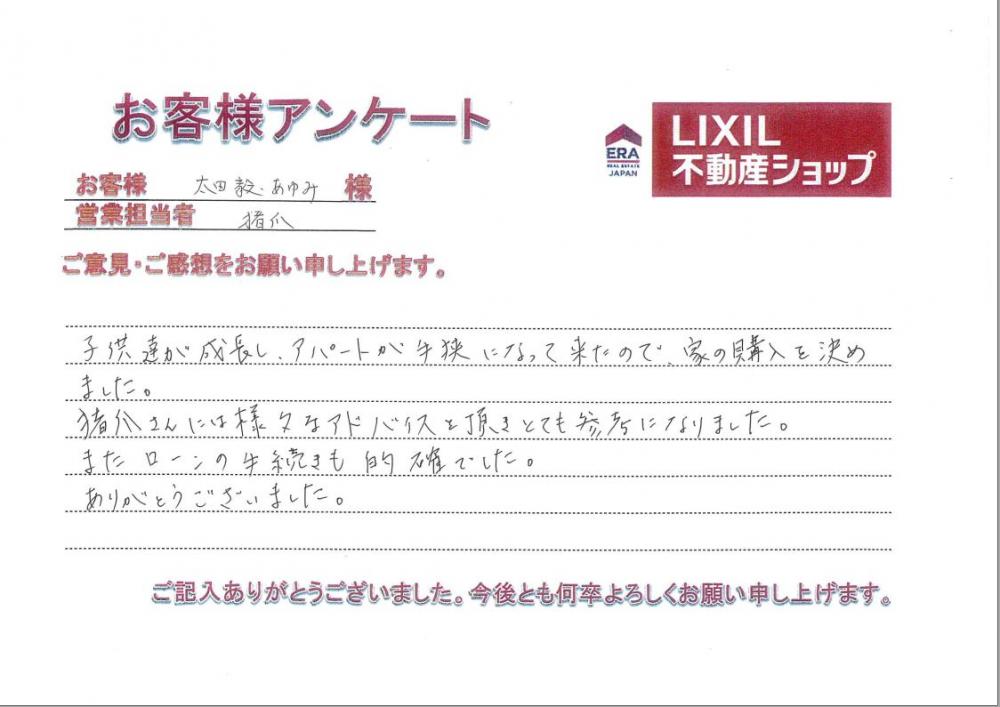 お客様アンケート
ERA
REAL ESTATE
JAPAN
LIXIL
不動産ショップ
お客様 太田 毅・あゆみ 様
営業担当者 猪爪
ご意見・ご感想をお願い申し上げます。
子供達が成長し、アパートが手狭になって来たので、家の購入を決め
ました。
猪爪さんには様々なアドバイスを頂きとても参考になりました。
またローンの手続きも的確でした。
ありがとうございました。
ご記入ありがとうございました。今後とも何卒よろしくお願い申し上げます。